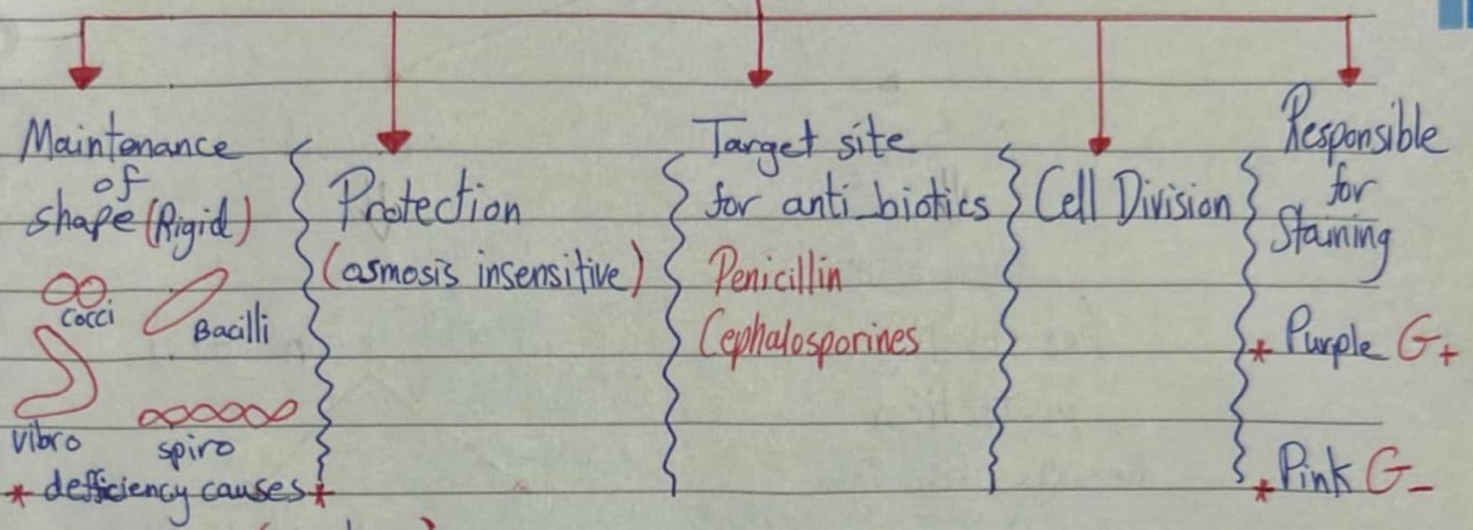 Maintenance
of
shape (Rigid)
cocci
Bacilli
vibro
spiro
* defficiency causes *
Protection
(osmosis insensitive)
Target site
for anti_biotics
Penicillin
Cephalosporines
Cell Division
Responsible
for
Staining
* Purple G+
* Pink G-